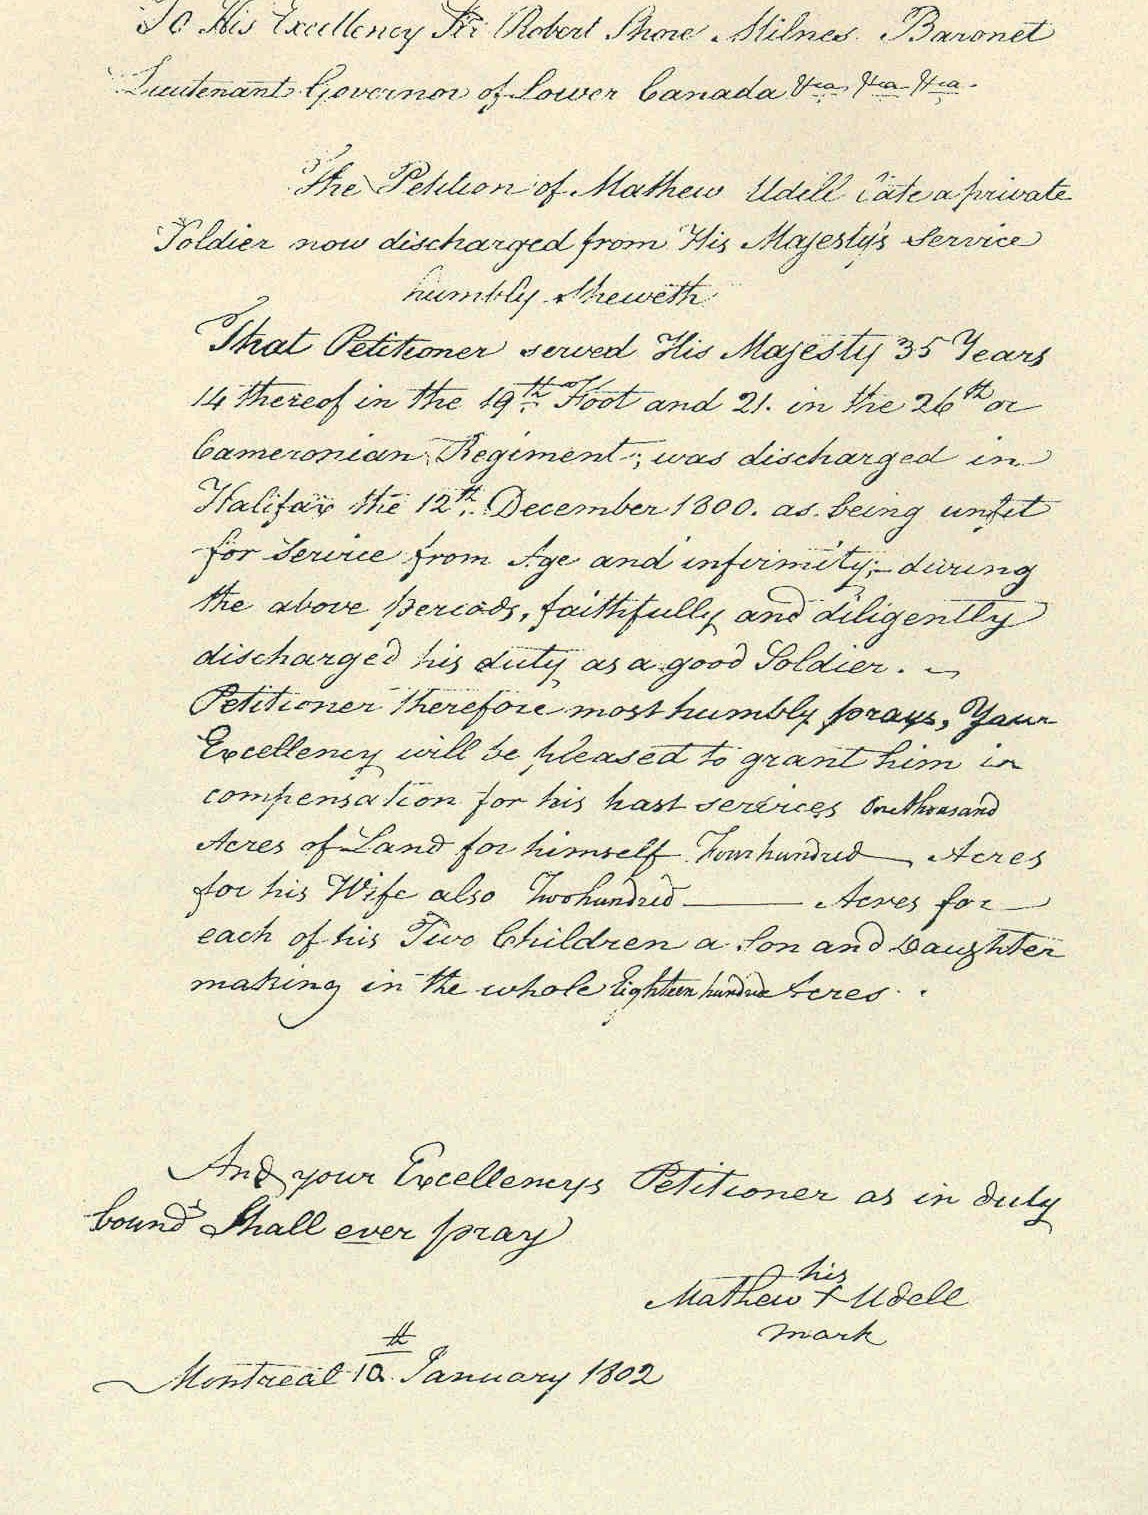 To His Excellency Sir Robert Shore Milnes Baronet
Lieutenant Governor of Lower Canada &ca &ca &ca
The Petition of Mathew Udell late a private
Soldier now discharged from His Majesty's Service
humbly Sheweth
That Petitioner served His Majesty 35 Years
14 thereof in the 19th Foot and 21. in the 26th or
Cameronian Regiment; was discharged in
Halifax the 12th December 1800. as being unfit
for Service from Age and infirmity;- during
the above periods, faithfully and diligently
discharged his duty as a good Soldier.
Petitioner therefore most humbly prays, Your
Excellency will be pleased to grant him in
compensation for his past services One thousand
Acres of Land for himself Four hundred Acres
for his Wife also Two hundred Acres for
each of his Two Children a Son and Daughter
making in the whole Eighteen hundred Acres.
And your Excellencys Petitioner as in duty
bound Shall ever pray
his
Mathew X Udell
mark
Montreal 10th January 1802